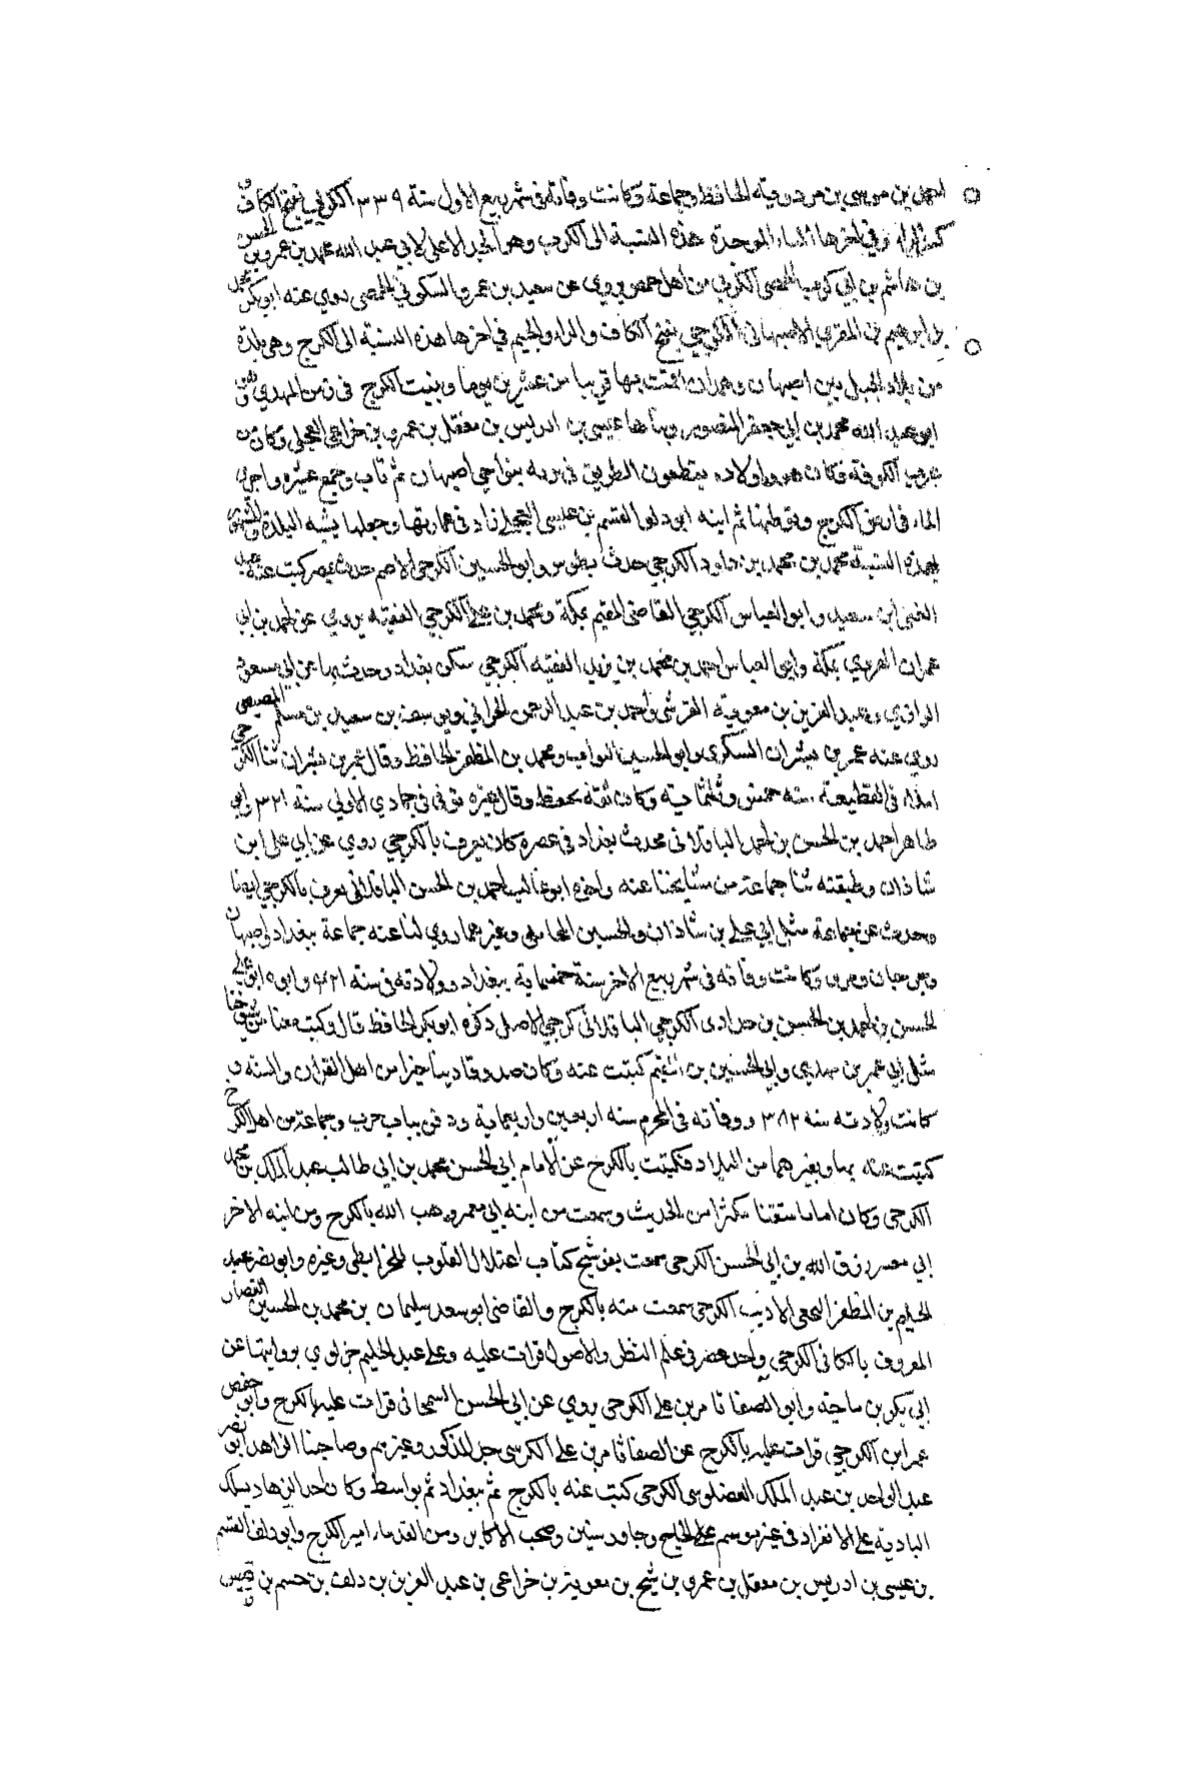 احمد بن موسى بن مردويه الحافظ وجماعة وكانت وفاته فى شهر ربيع الاول سنة ٣٣٩ الكربي بفتح الكاف و
كسر الراء وفي اخرها الباء الموحدة هذه النسبة الى الكرب وهو الجد الاعلى لابي عبد الله محمد بن عمرو بن الحسن
بن هاشم بن ابي كرب الحمصى الكربي من اهل حمص يروي عن سعيد بن عمرو السكوني الحمصى روي عنه ابو بكر محمد
بن ابرهيم بن المقري الاصبهانى الكرجي بفتح الكاف والراء والجيم في اخرها هذه النسبة الى الكرج وهى بلدة
من بلاد الجبل بين اصبهان وهمدان اقمت بها قريبا من عشرين يوما وبنيت الكرج فى زمن المهدي
ابو عبد الله محمد بن ابي جعفر المنصور وبناها عيسى بن ادريس بن معقل بن عمرو بن خزاعي العجلي وكان من
عرب الكوفة فكان هو واولاده يقطعون الطريق فى بنواحي اصبهان ثم تاب وجمع عشيره واجرى
الماء فى الكرج وتوطنها ثم ابنه ابو دلف القسم بن عيسى العجلي زاد فى عمارتها وجعلها يشبه البلدة والمشهور
بهذه النسبة محمد بن محمد بن داود الكرجي حدث بطرسوس وابو الحسين الكرجي الاصم حدث بمصر كتبت عنه عبد
الغنى ابن سعيد وابو العباس الكرجي القاضى المقيم بمكة ومحمد بن على الكرجي الفقيه يروي عن احمد بن ابي
عمران الهروي بمكة وابو العباس احمد بن محمد بن يزيد الفقيه الكرجي سكن بغداد وحدث بها عن ابي مسعود
الرازي وعبد العزيز بن معوية القرشى واحمد بن عبد الرحمن الحراني ويوسف بن سعيد بن مسلم المصيصي
روي عنه عمر بن بشران السكري وابو الحسين البواب ومحمد بن المظفر الحافظ وقال عمر بن بشران ثنا الكرجي
املاء فى القطيعة سنة خمس وثلثماية وكان ثقة يحفظ وقال غيره توفى فى جمادي الاولي سنة ٣٢١ وابو
طاهر احمد بن الحسن بن احمد الباقلانى محدث بغداد فى عصره كان يعرف بالكرجي روي عن ابي على ابن
شاذان وطبقته ثنا جماعة من مشايخنا عنه واخوه ابو غالب احمد بن الحسن الباقلانى يعرف بالكرجي ايضا
وحدث عن جماعة مثل ابي علي بن شاذان والحسين المحاملى وغيرهما روي لنا عنه جماعة ببغداد واصبهان
وكانت وفاته فى شهر ربيع الاخر سنة خمسماية ببغداد وولادته فى سنة ٤٢١ وابوه ابو علي
الحسن بن احمد بن الحسن بن حدادى الكرجي الباقلانى كرجي الاصل ذكره ابو بكر الحافظ قال وكتب معنا من شيوخنا
مثل ابي عمر بن مهدي وابي الحسين بن المتيم كتبت عنه وكان صدوقا دينا خيرا من اهل القران والسنة و
كانت ولادته سنة ٣٨٢ ووفاته فى المحرم سنه اربعين واربعماية ودفن بباب حرب وجماعة من اهل الكرج
كتبت عنه بها وبغيرهما من البلاد فكتبت بالكرج عن الامام ابي الحسن محمد بن ابي طالب عبد الملك بن محمد
الكرجى وكان اماما متقنا مكثرا من الحديث وسمعت من ابنه ابي معمر وهب الله بالكرج ومن ابنه الاخر
ابي معمر رزق الله بن ابي الحسن الكرجى سمعت بفوشنج كتاب اعتلال القلوب للخرايطى وغيره وابو نصر عبد
الحليم بن المظفر الاديب الكرجى سمعت منه بالكرج والقاضى ابو سعد سليمان بن محمد بن الحسين القصار
المعروف بالكافى الكرجي واحد عصره فى علم النظر والاصول قرات عليه وعلى عبد الحليم جز لوين بروايتها عن
ابي بكر بن ماجة وابو الصفا تامر بن على الكرجى يروي عن ابي الحسن السمحانى قرات عليه بالكرج وابو حفص
عمر ابن الكرجي قرات عليه بالكرج عن الصفا ثامر بن على الكرسى جل المذكور وغيرهم وصاحبنا الزاهد ابو نصر
عبد الواحد بن عبد الملك الفضلوسى الكرجى كتبت عنه بالكرج ثم ببغداد ثم بواسط وكان احد الزهاد يسلك
البادية على الانفراد فى غير موسم على الحاج وجاور سنين وصحب الاكابر ومن القدماء امير الكرج وابو دلف القسم
بن عيسى بن ادريس بن معقل بن عمرو بن شيخ بن معوية بن خزاعى بن عبد العزيز بن دلف بن جشم بن قيس